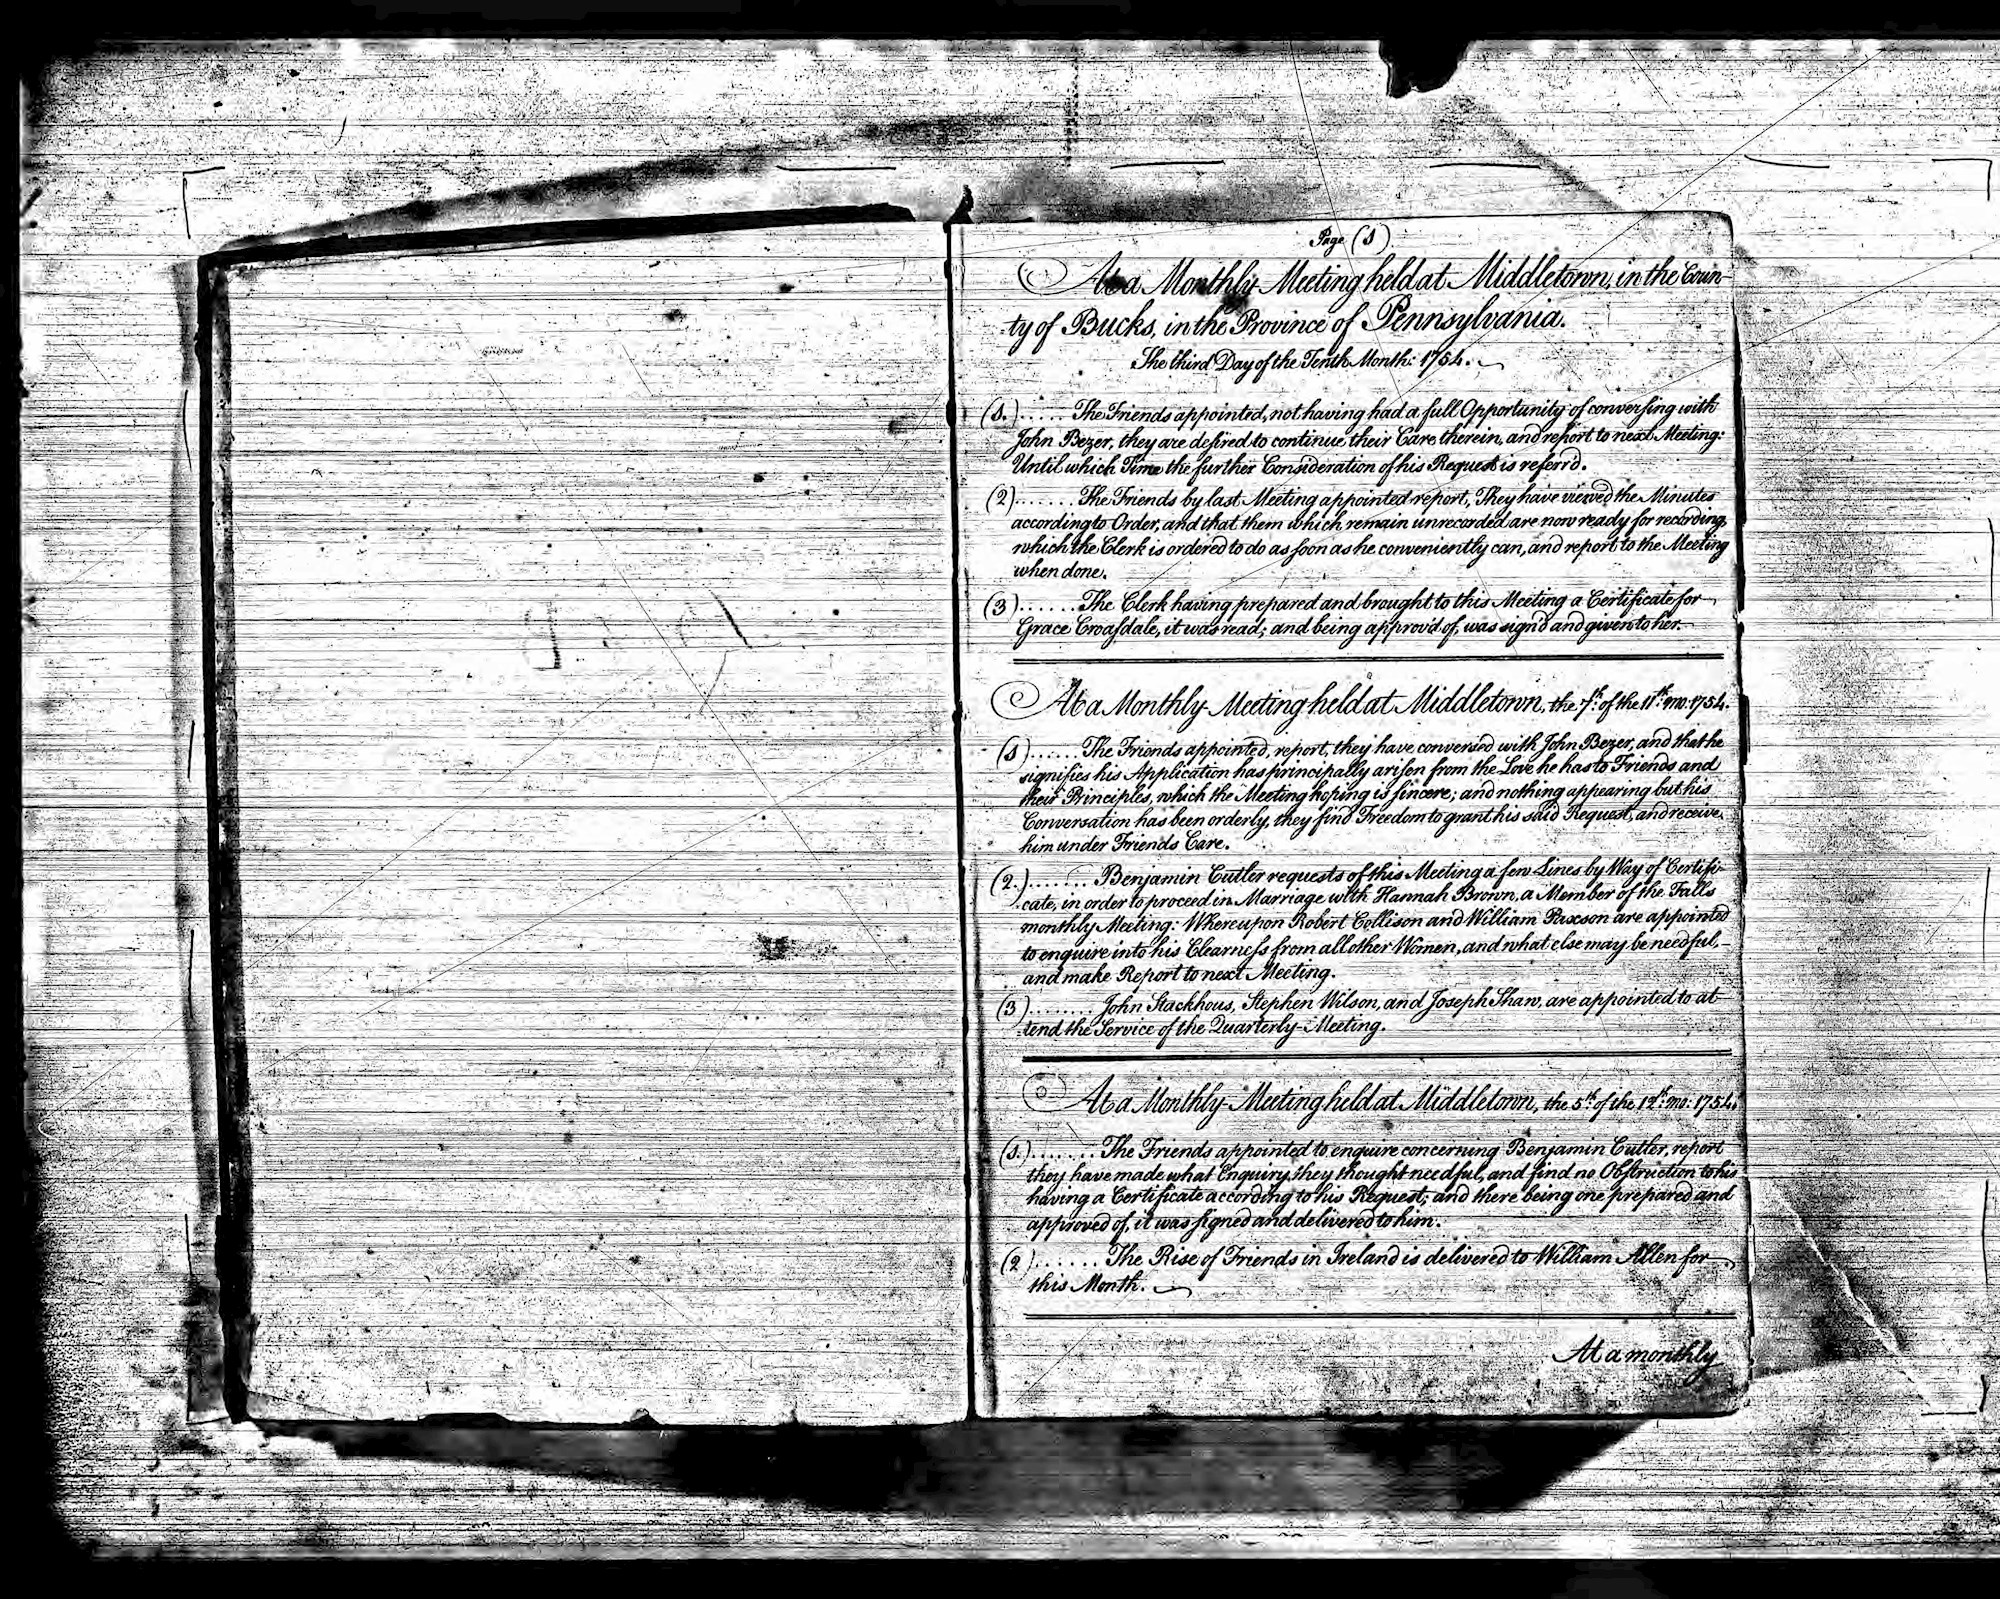 Page (1)
At a Monthly Meeting held at Middletown, in the Coun-
ty of Bucks, in the Province of Pennsylvania.
The third Day of the Tenth Month: 1754.
(1.)..... The Friends appointed, not having had a full Opportunity of conversing with
John Bezer, they are desired to continue their Care therein, and report to next Meeting:
Until which Time the further Consideration of his Request is referr'd.
(2)....... The Friends by last Meeting appointed report, They have viewed the Minutes
according to Order, and that them which remain unrecorded are now ready for recording,
which the Clerk is ordered to do as soon as he conveniently can, and report to the Meeting
when done.
(3)...... The Clerk having prepared and brought to this Meeting a Certificate for
Grace Croasdale, it was read; and being approv'd of, was sign'd and given to her.
At a Monthly Meeting held at Middletown, the 7th of the 11th mo: 1754.
(1)...... The Friends appointed, report, they have conversed with John Bezer, and that he
signifies his Application has principally arisen from the Love he has to Friends and
their Principles, which the Meeting hoping is sincere; and nothing appearing but his
Conversation has been orderly, they find Freedom to grant his said Request, and receive
him under Friends Care.
(2.)....... Benjamin Cutler requests of this Meeting a few Lines by Way of Certifi-
cate, in order to proceed in Marriage with Hannah Brown, a Member of the Falls
monthly Meeting: Whereupon Robert Collison and William Paxson are appointed
to enquire into his Clearness from all other Women, and what else may be needful,
and make Report to next Meeting.
(3)........ John Stackhous, Stephen Wilson, and Joseph Shaw, are appointed to at-
tend the Service of the Quarterly-Meeting.
At a Monthly Meeting held at Middletown, the 5th of the 12th mo: 1754.
(1.)....... The Friends appointed to enquire concerning Benjamin Cutler, report
they have made what Enquiry they thought needful, and find no Obstruction to his
having a Certificate according to his Request; and there being one prepared and
approved of, it was signed and delivered to him.
(2)...... The Rise of Friends in Ireland is delivered to William Allen for
this Month.
At a monthly